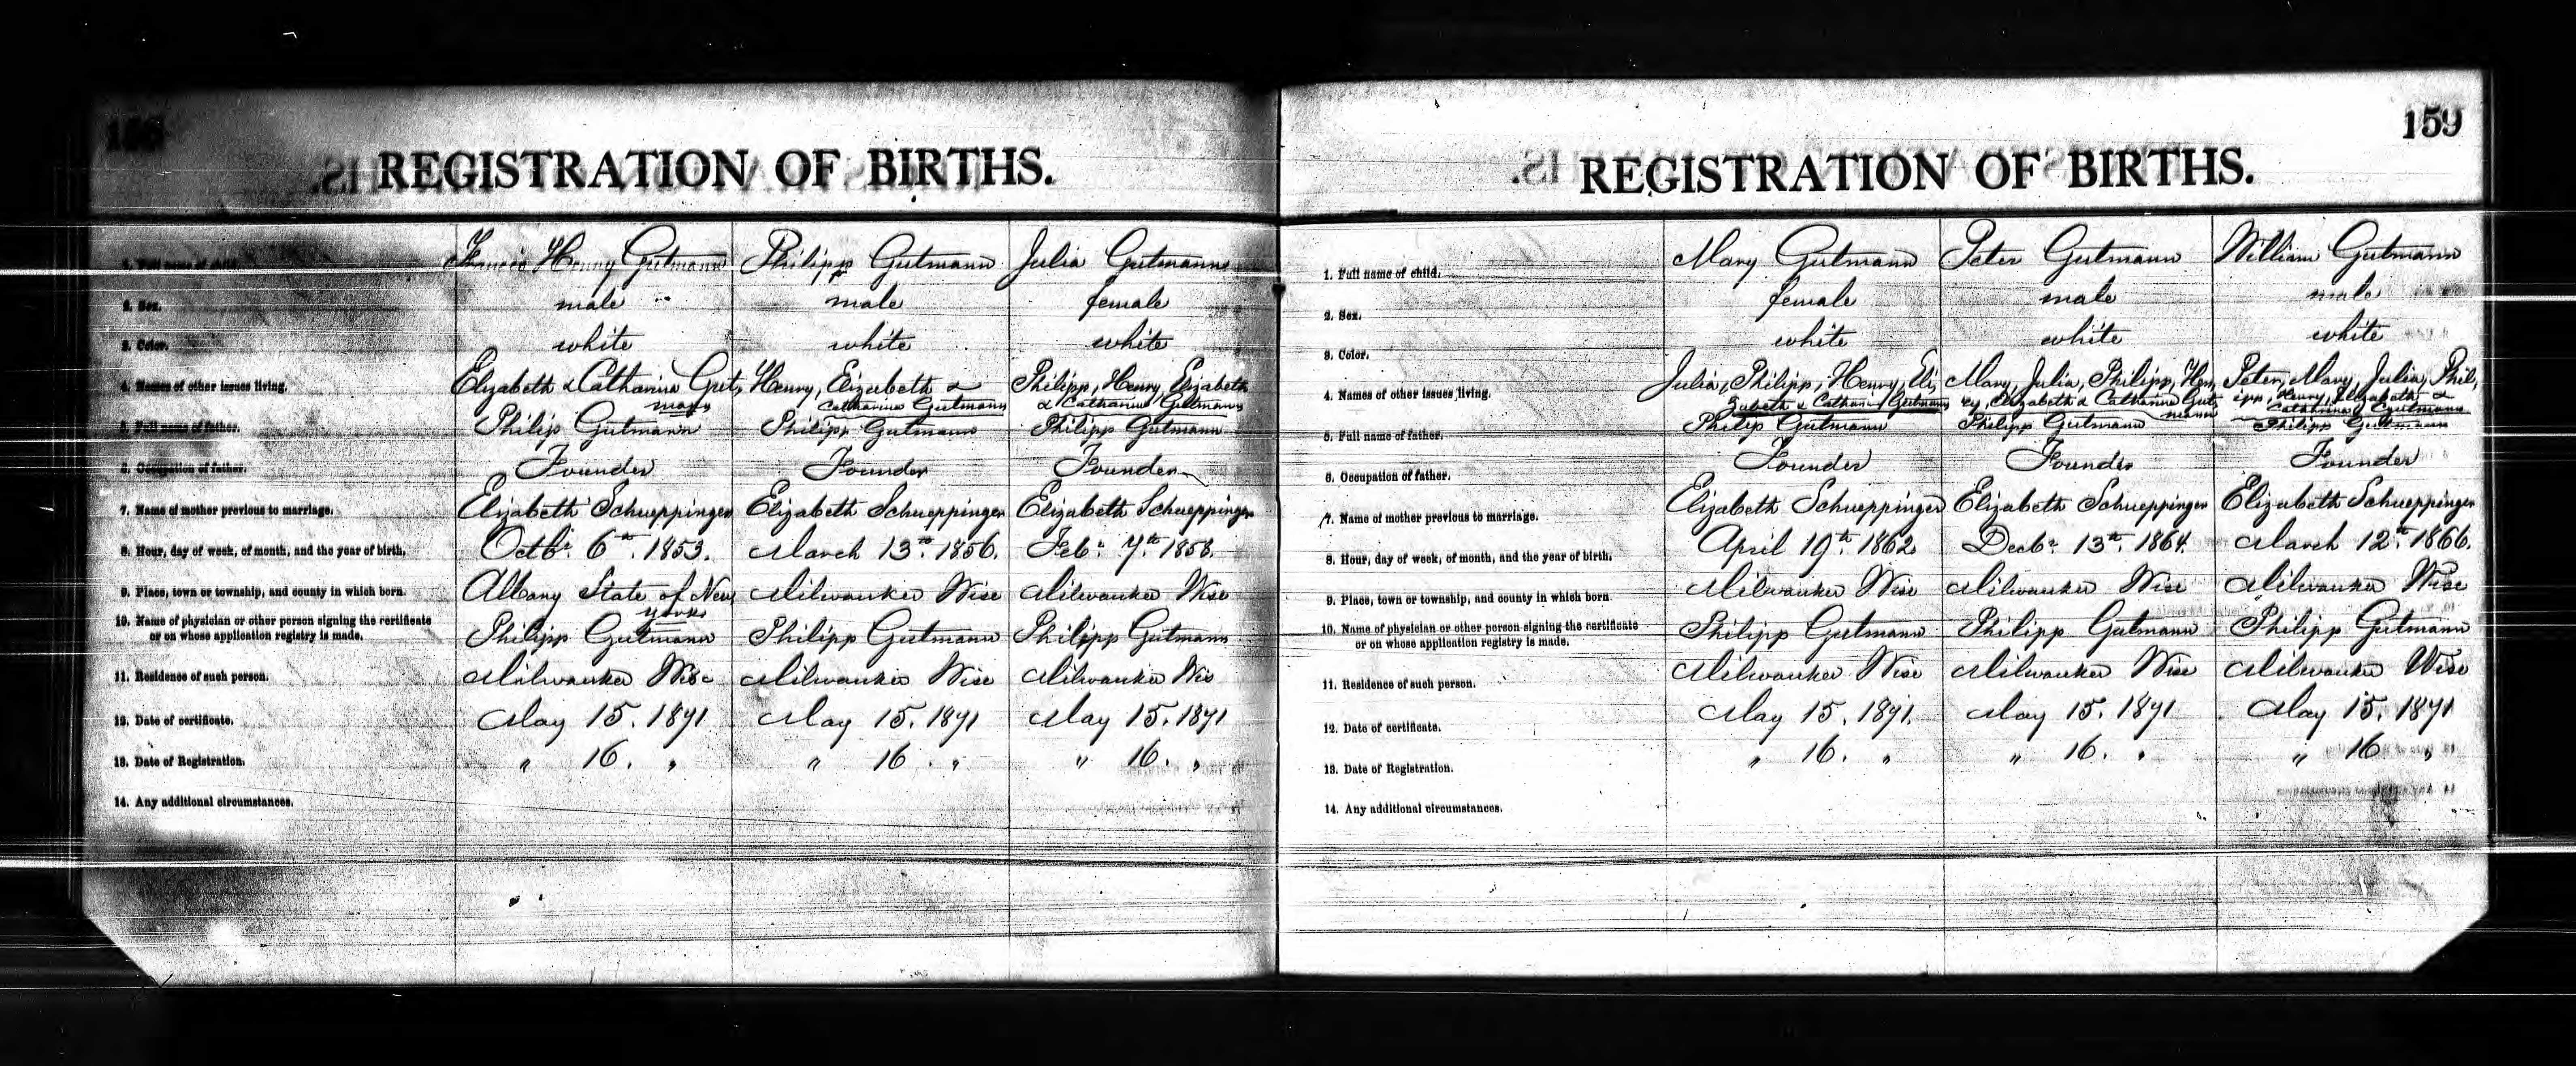 REGISTRATION OF BIRTHS.
1. Full name of child.
2. Sex.
3. Color.
4. Names of other issues living.
5. Full name of father.
6. Occupation of father.
7. Name of mother previous to marriage.
8. Hour, day of week, of month, and the year of birth.
9. Place, town or township, and county in which born.
10. Name of physician or other person signing the certificate
or on whose application registry is made.
11. Residence of such person.
12. Date of certificate.
13. Date of Registration.
14. Any additional circumstances.
Francis Henry Gutmann
male
white
Elizabeth & Catharina Gut,
mann
Philip Gutmann
Founder
Elizabeth Schueppinger
Octbr 6th. 1853.
Albany State of New
York
Philipp Gutmann
Milwaukee Wisc
May 15. 1871
" 16. "
Philipp Gutmann
male
white
Henry, Elizabeth &
Catharina Gutmann
Philipp Gutmann
Founder
Elizabeth Schueppinger
March 13th. 1856.
Milwaukee Wisc
Philipp Gutmann
Milwaukee Wisc
May 15. 1871
" 16. "
Julia Gutmann
female
white
Philipp, Henry, Elizabeth
& Catharina Gutmann
Philipp Gutmann
Founder
Elizabeth Schueppinger
Febr. 7th. 1858.
Milwaukee Wisc
Philipp Gutmann
Milwaukee Wis
May 15. 1871
" 16. "
159
REGISTRATION OF BIRTHS.
1. Full name of child.
2. Sex.
3. Color.
4. Names of other issues living.
5. Full name of father.
6. Occupation of father.
7. Name of mother previous to marriage.
8. Hour, day of week, of month, and the year of birth.
9. Place, town or township, and county in which born.
10. Name of physician or other person signing the certificate
or on whose application registry is made.
11. Residence of such person.
12. Date of certificate.
13. Date of Registration.
14. Any additional circumstances.
Mary Gutmann
female
white
Julia, Philipp, Henry, Eli,
zabeth & Catharina Gutmann
Philip Gutmann
Founder
Elizabeth Schueppinger
April 19th. 1862.
Milwaukee Wisc
Philipp Gutmann
Milwaukee Wisc
May 15. 1871.
" 16. "
Peter Gutmann
male
white
Mary, Julia, Philipp, Hen,
ry, Elizabeth & Catharina Gut
mann
Philipp Gutmann
Founder
Elizabeth Schueppinger
Decbr. 13th. 1864.
Milwaukee Wisc
Philipp Gutmann
Milwaukee Wisc
May 15. 1871
" 16. "
William Gutmann
male
white
Peter, Mary, Julia, Phil,
ipp, Henry, Elizabeth &
Catharina Gutmann
Philipp Gutmann
Founder
Elizabeth Schueppinger
March 12th. 1866.
Milwaukee Wisc
Philipp Gutmann
Milwaukee Wisc
May 15. 1871
" 16 "